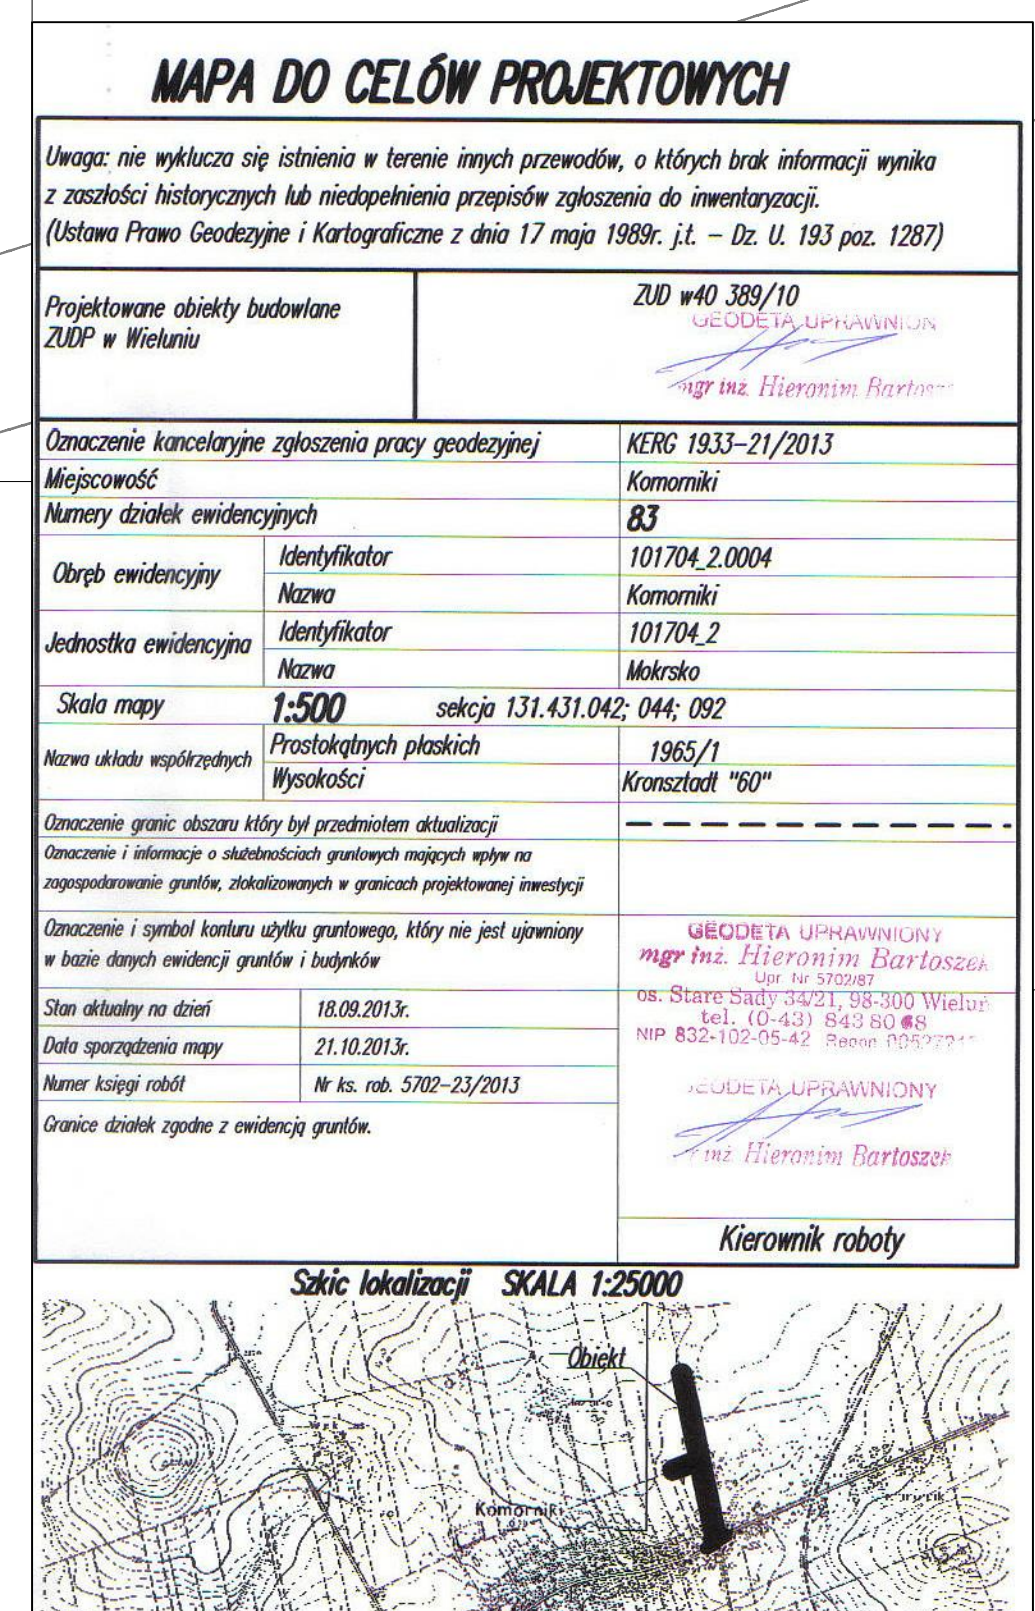 MAPA DO CELÓW PROJEKTOWYCH
Uwaga: nie wyklucza się istnienia w terenie innych przewodów, o których brak informacji wynika
z zaszłości historycznych lub niedopełnienia przepisów zgłoszenia do inwentaryzacji.
(Ustawa Prawo Geodezyjne i Kartograficzne z dnia 17 maja 1989r. j.t. – Dz. U. 193 poz. 1287)
Projektowane obiekty budowlane
ZUDP w Wieluniu
ZUD w40 389/10
GEODETA UPRAWNION
mgr inż. Hieronim
Oznaczenie kancelaryjne zgłoszenia pracy geodezyjnej KERG 1933-21/2013
Miejscowość Komorniki
Numery działek ewidencyjnych 83
Obręb ewidencyjny
Identyfikator 101704_2.0004
Nazwa Komorniki
Jednostka ewidencyjna
Identyfikator 101704_2
Nazwa Mokrsko
Skala mapy 1:500 sekcja 131.431.042; 044; 092
Nazwa układu współrzędnych
Prostokątnych płaskich 1965/1
Wysokości Kronsztadt "60"
Oznaczenie granic obszaru który był przedmiotem aktualizacji
Oznaczenie i informacje o służebnościach gruntowych mających wpływ na
zagospodarowanie gruntów, zlokalizowanych w granicach projektowanej inwestycji
Oznaczenie i symbol konturu użytku gruntowego, który nie jest ujawniony
w bazie danych ewidencji gruntów i budynków
Stan aktualny na dzień 18.09.2013r.
Data sporządzenia mapy 21.10.2013r.
Numer księgi robót Nr ks. rob. 5702-23/2013
Granice działek zgodne z ewidencją gruntów.
GEODETA UPRAWNIONY
mgr inż. Hieronim Bartoszek
Upr. Nr 5702/87
os. Stare Sady 34/21, 98-300 Wieluń
tel. (0-43) 843 80 68
NIP 832-102-05-42 Regon
GEODETA UPRAWNIONY
inż. Hieronim Bartoszek
Kierownik roboty
Szkic lokalizacji SKALA 1:25000
Obiekt
Komorniki